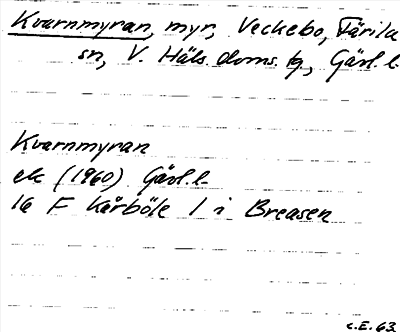 Kvarnmyran, myr, Veckebo, Färila
sn, V. Häls. doms. tg, Gävl. l.
Kvarnmyran
ek (1960) Gävl. l.
16 F Kårböle 1 i Breasen
C.E. 63